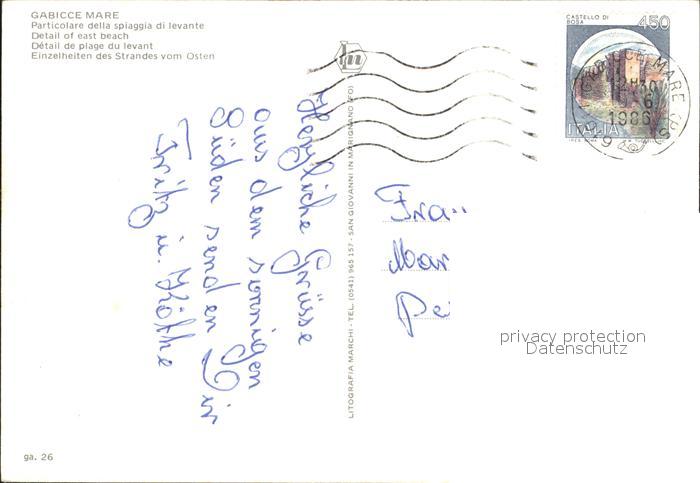 GABICCE MARE
Particolare della spiaggia di levante
Detail of east beach
Détail de plage du levant
Einzelheiten des Strandes vom Osten
CASTELLO DI
BOSA
450
ITALIA
GABICCE MARE (PS)
6
1986
Herzliche Grüsse
aus dem sonnigen
Süden senden Dir
Fritz u. Käthe
LITOGRAFIA MARCHI - TEL. (0541) 965 157 - SAN GIOVANNI IN MARIGNANO (FO)
Frau
Mar
Pe
privacy protection
Datenschutz
ga. 26